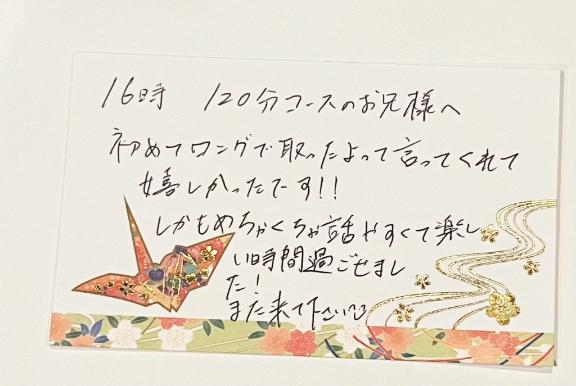 16時 120分コースのお兄様へ
初めてロングで取ったよって言ってくれて
嬉しかったです!!
しかもめちゃくちゃ話やすくて楽し
い時間過ごせまし
た!
また来て下さい♡